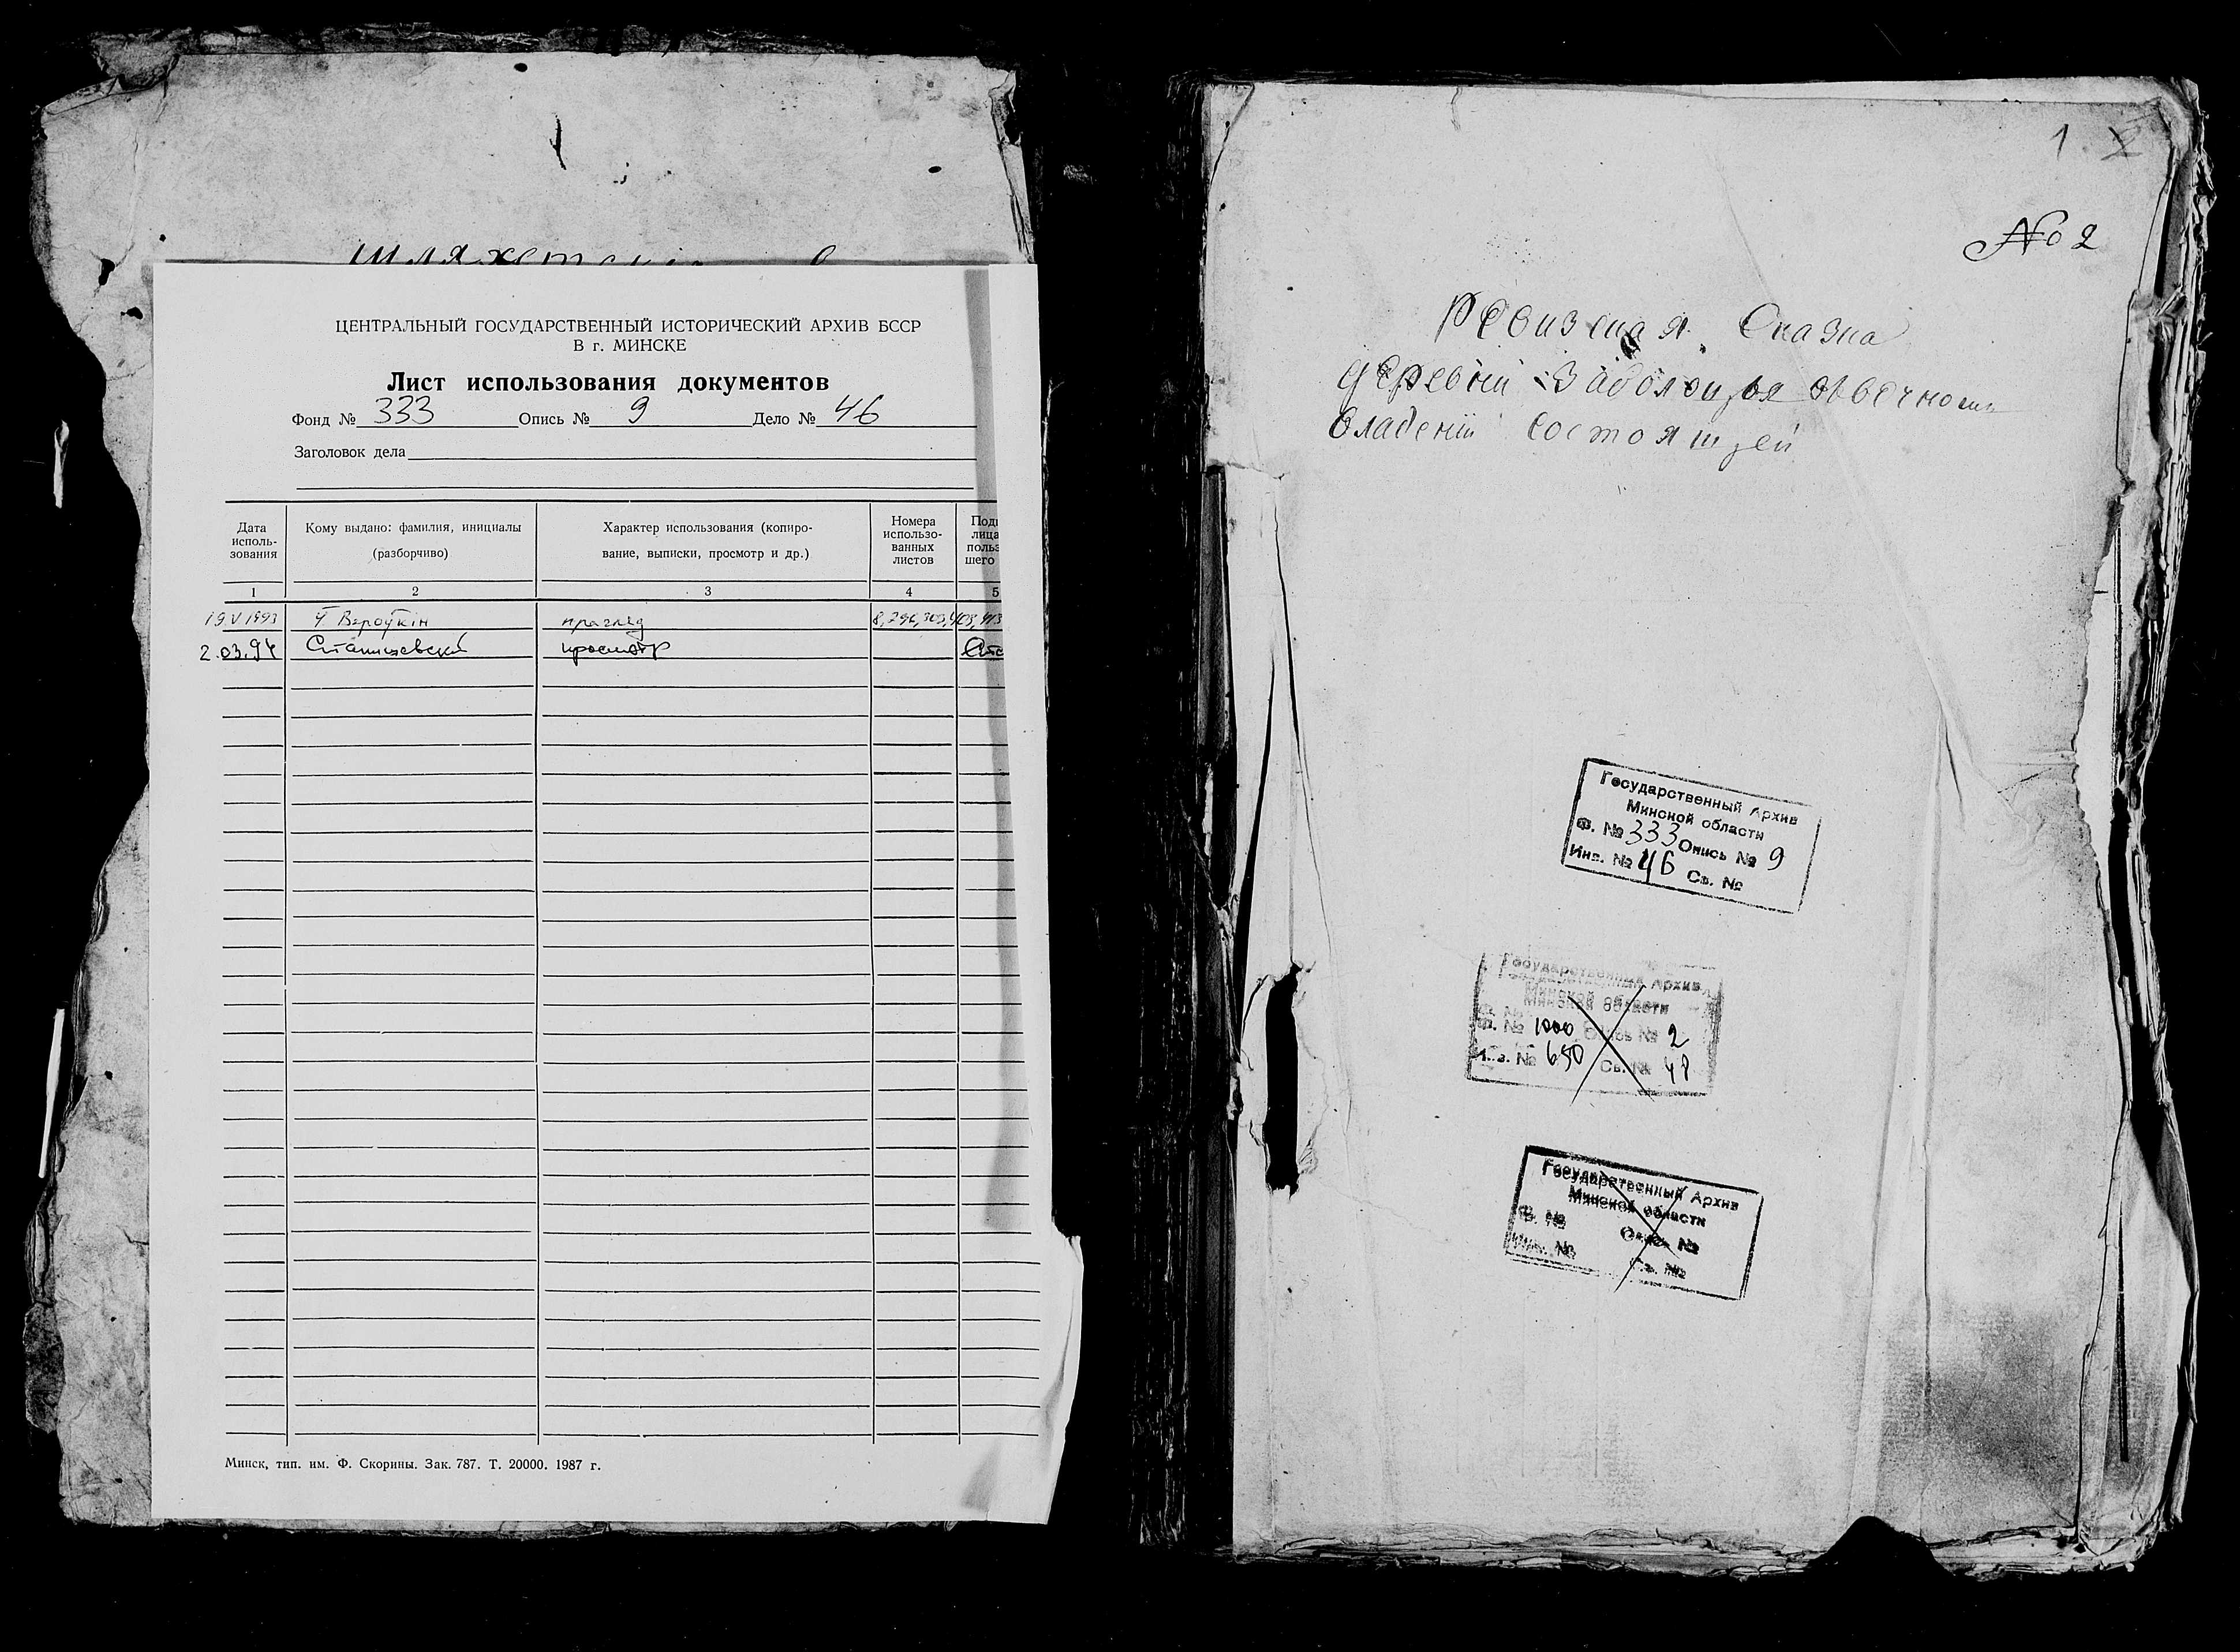 ЦЕНТРАЛЬНЫЙ ГОСУДАРСТВЕННЫЙ ИСТОРИЧЕСКИЙ АРХИВ БССР
В г. МИНСКЕ
Лист использования документов
Фонд № 333 Опись № 9 Дело № 46
Заголовок дела
Дата исполь-зования
Кому выдано: фамилия, инициалы (разборчиво)
Характер использования (копиро-вание, выписки, просмотр и др.)
Номера использо-ванных листов
1 2 3 4 5
19.V 1993 прагляд
2.03.94 Станишевский просмотр
Минск, тип. им. Ф. Скорины. Зак. 787. Т. 20000. 1987 г.
1
№ 2
Ревизская Сказка
деревни
владении состоящей
Государственный Архив
Минской области
Ф. № 333 Опись № 9
Инв. № 46 Св. №
Государственный Архив
Минской области
Ф. № 1000 Опись № 2
Инв. № 650 Св. № 48
Государственный Архив
Минской области
Ф. № Опись №
Инв. № Св. №